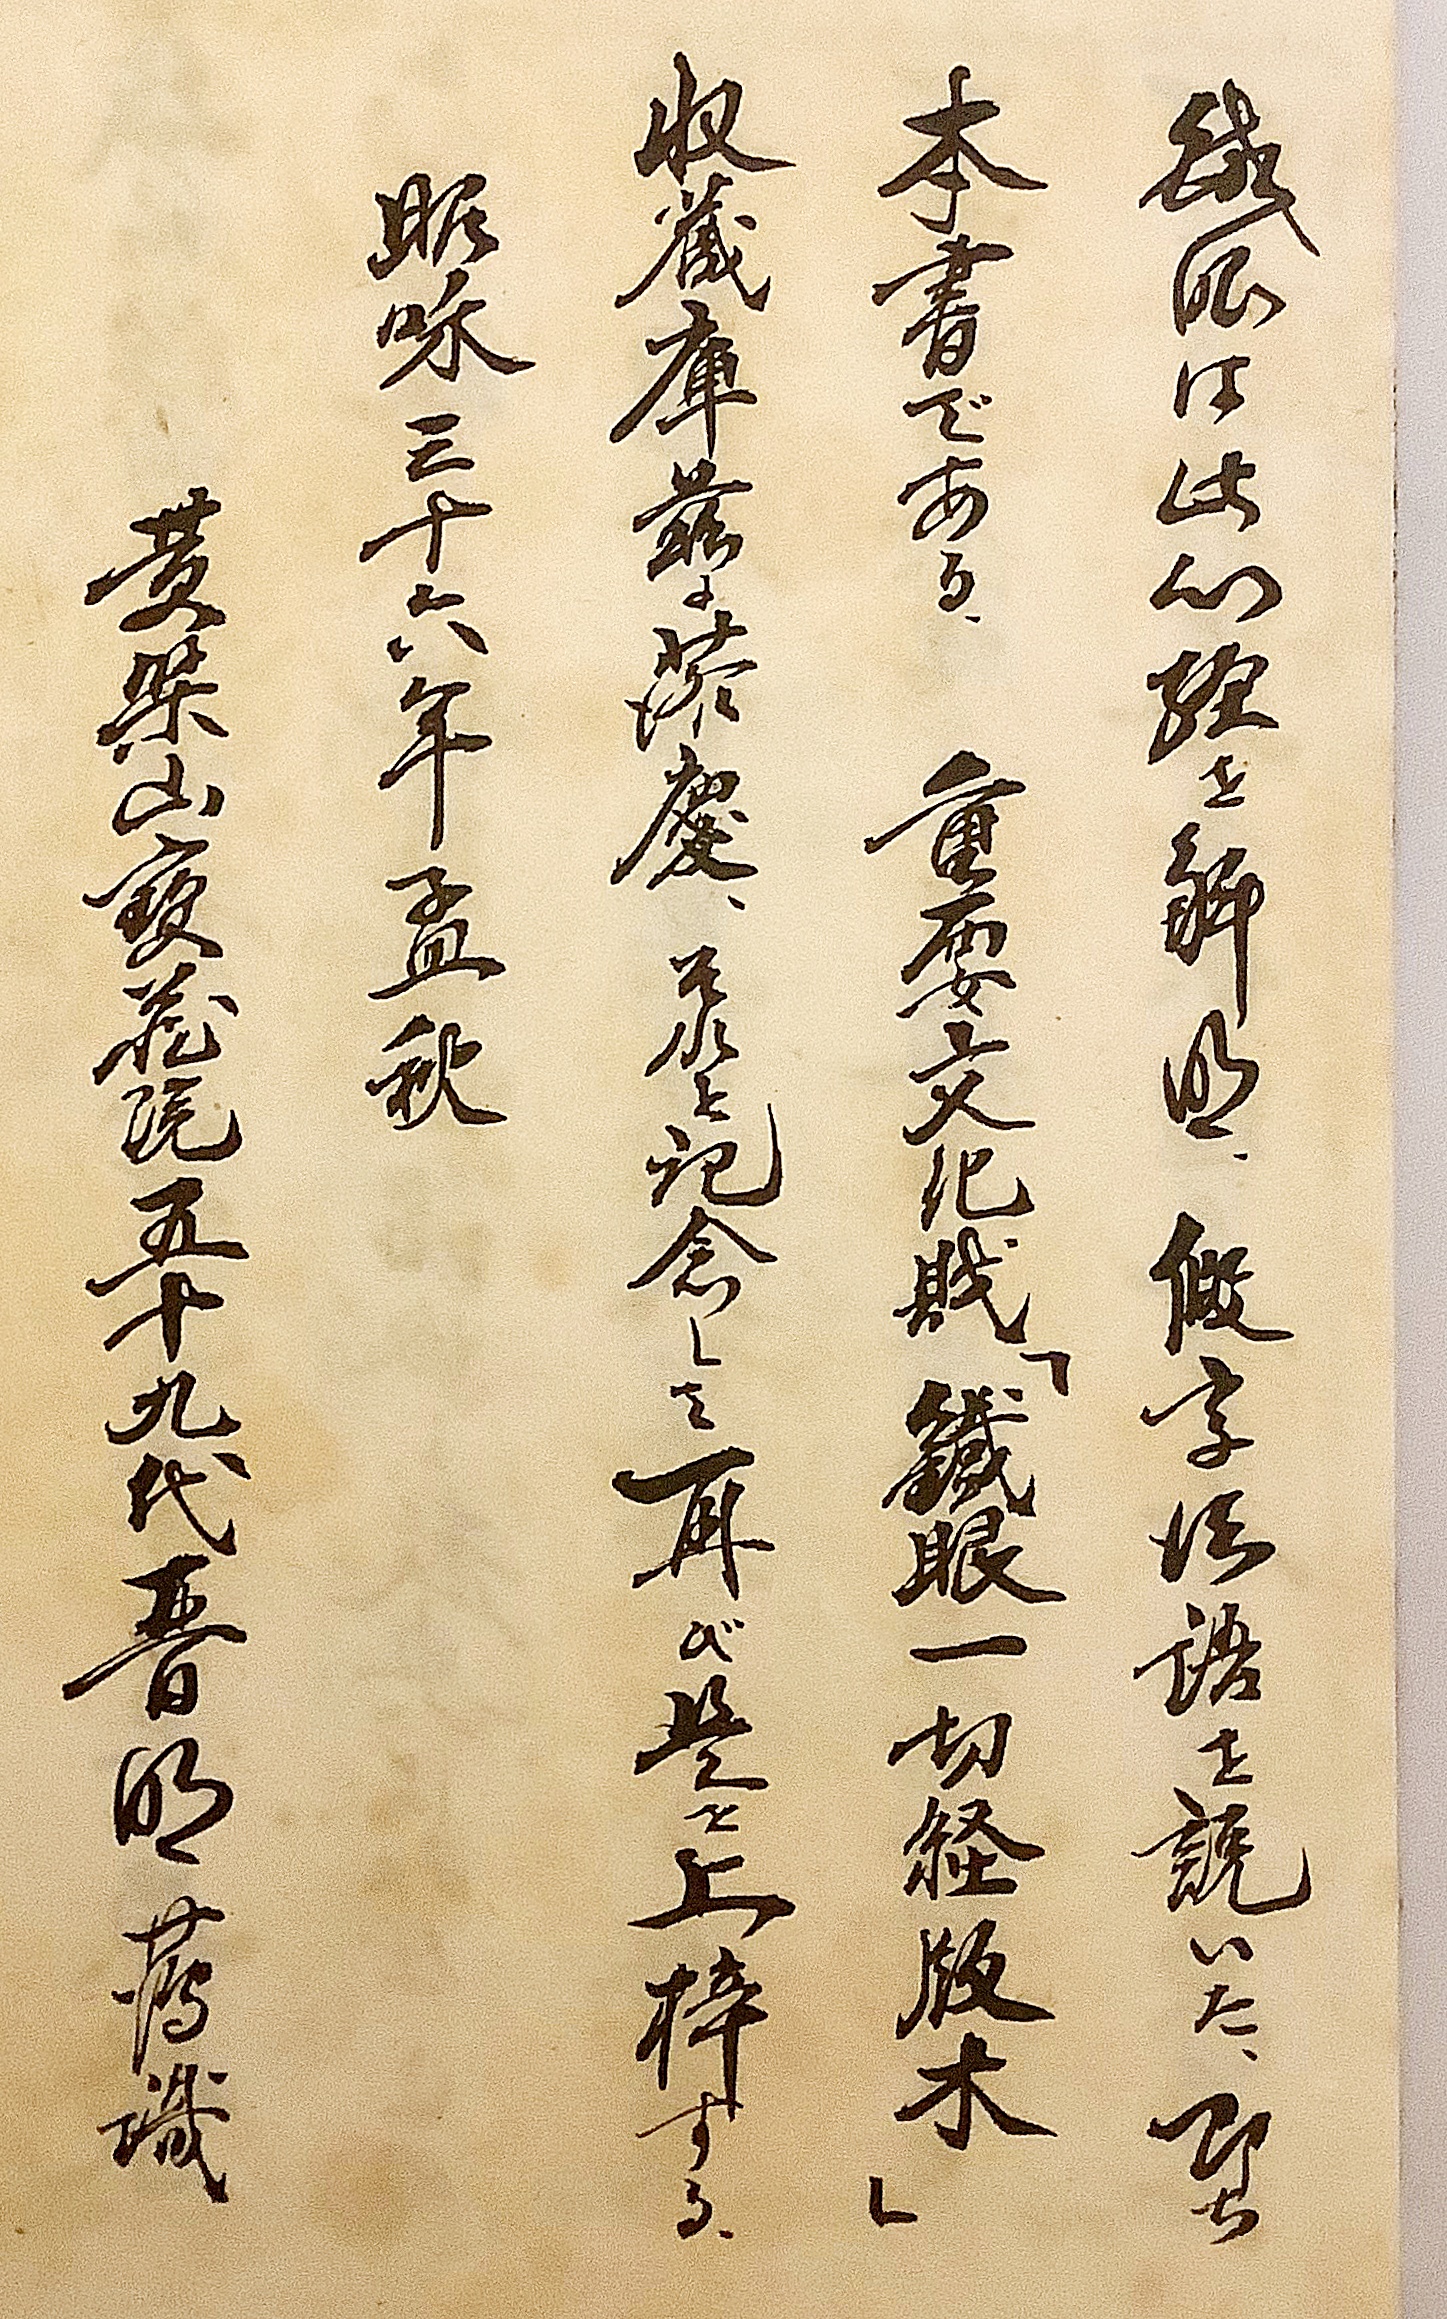 鐵眼は此心経を解明、假字法語を説いた、即ち
本書である、 重要文化財「鐵眼一切経版木」
収蔵庫茲に落慶、是れを記念して再び是を上梓する、
昭和三十六年孟秋
黄檗山寳蔵院五十九代晋明 識